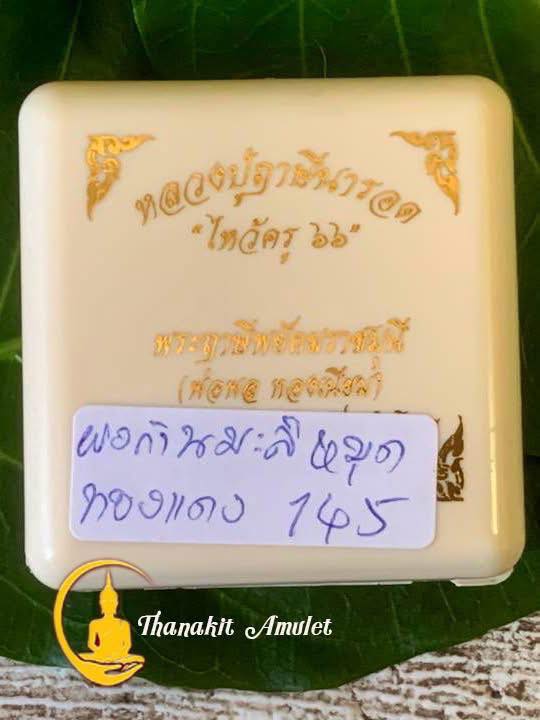 หลวงปู่ฤาษีนารอด
"ไหว้ครู ๖๖"
พระฤาษีพยัคฆราชมุนี
(พ่อพล ทองเนียม)
พอก้านมะลิ หมุด
ทองแดง 145
Thanakit Amulet